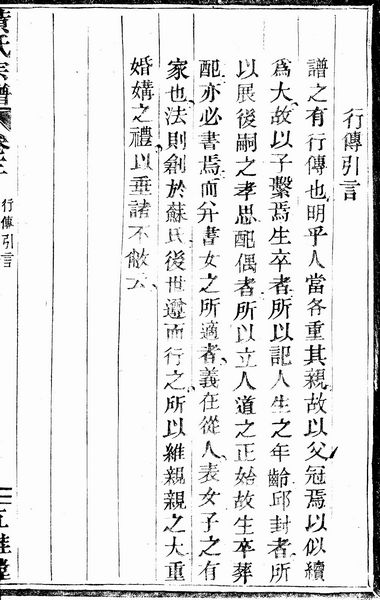 行傳引言
譜之有行傳也明乎人當各重其親故以父冠焉以似續
爲大故以子繫焉生卒者所以記人生之年齡邱封者所
以展後嗣之孝思配偶者所以立人道之正始故生卒葬
配亦必書焉而幷書女之所適者義在從人表女子之有
家也法則創於蘇氏後世遵而行之所以維親親之大重
婚媾之禮以垂諸不敝云
黃氏宗譜 卷之
行傳引言